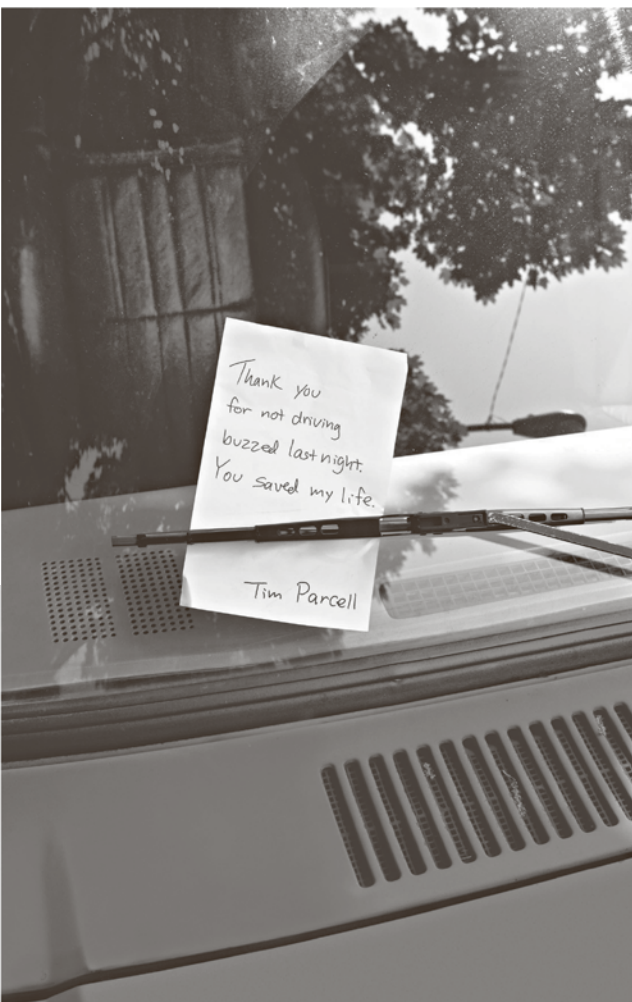 Thank you
for not driving
buzzed last night.
You saved my life.
Tim Parcell